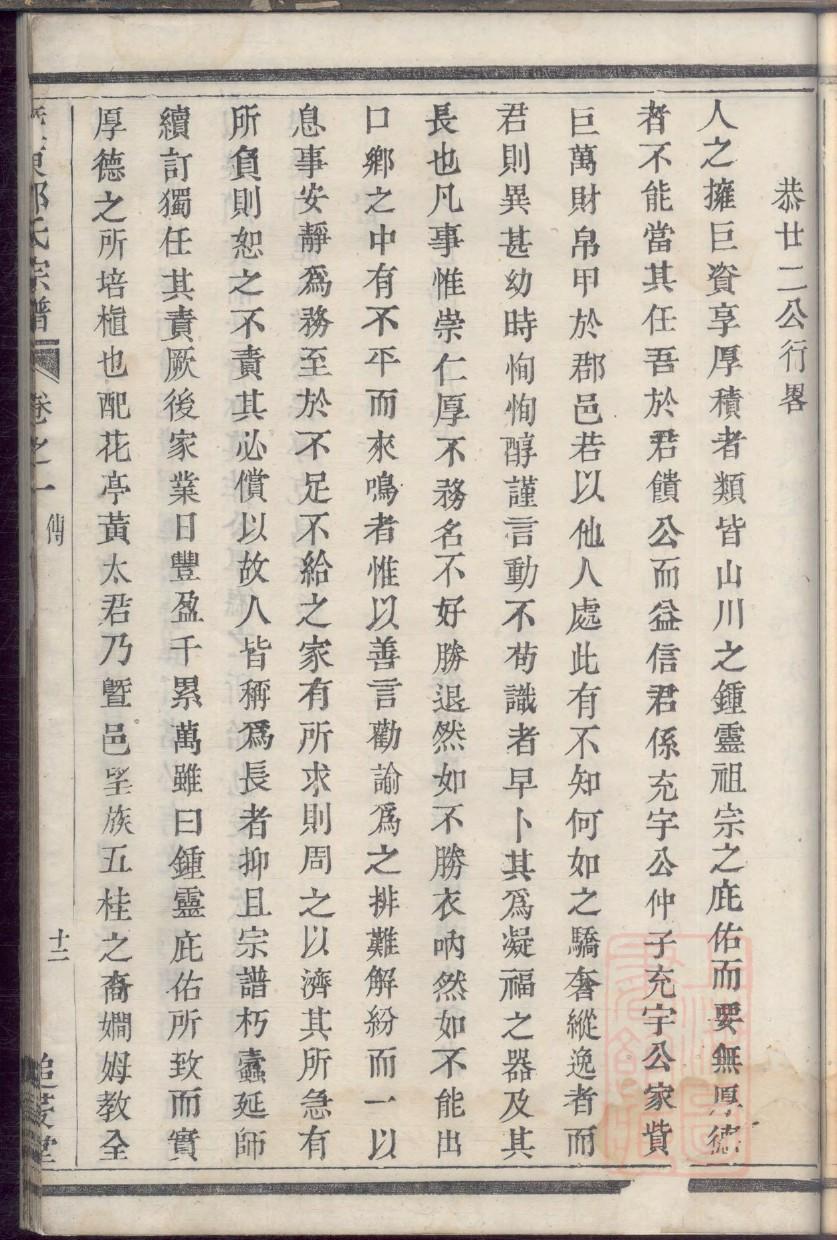 恭廿二公行畧
人之擁巨資享厚積者類皆山川之鍾靈祖宗之庇佑而要無厚德
者不能當其任吾於君饋公而益信君係充宇公仲子充宇公家貲
巨萬財帛甲於郡邑若以他人處此有不知何如之驕奢縱逸者而
君則異甚幼時恂恂醇謹言動不茍識者早卜其爲凝福之器及其
長也凡事惟崇仁厚不務名不好勝退然如不勝衣吶然如不能出
口鄉之中有不平而來鳴者惟以善言勸諭爲之排難解紛而一以
息事安靜爲務至於不足不給之家有所求則周之以濟其所急有
所負則恕之不責其必償以故人皆稱爲長者抑且宗譜朽蠹延師
續訂獨任其責厥後家業日豐盈千累萬雖曰鍾靈庇佑所致而實
厚德之所培植也配花亭黃太君乃暨邑望族五桂之裔嫺姆教全
東 氏宗譜 卷之一 傳 十二